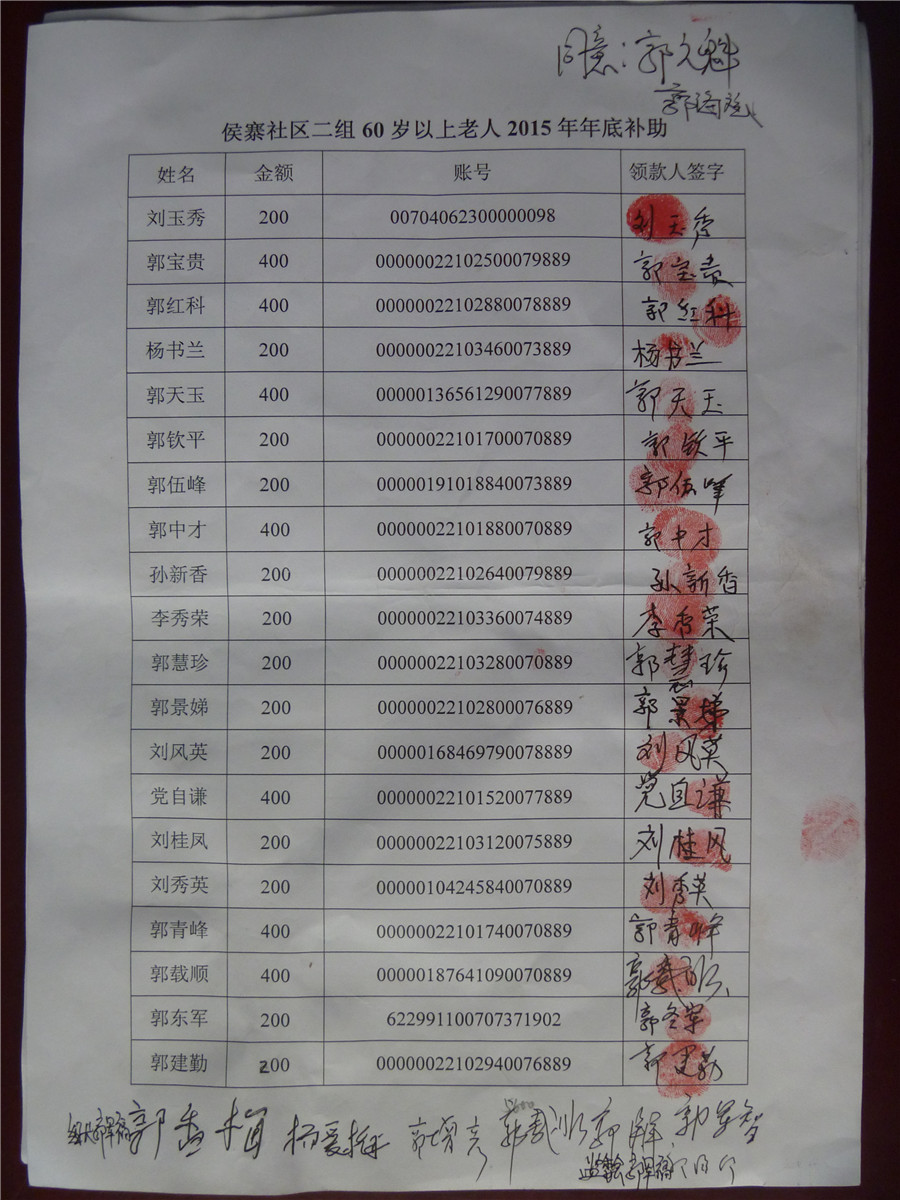 同意：郭文魁
侯寨社区二组60岁以上老人2015年年底补助
姓名 金额 账号 领款人签字
刘玉秀 200 00704062300000098 刘玉秀
郭宝贵 400 00000022102500079889 郭宝贵
郭红科 400 00000022102880078889 郭红科
杨书兰 200 00000022103460073889 杨书兰
郭天玉 400 00000136561290077889 郭天玉
郭钦平 200 00000022101700070889 郭钦平
郭伍峰 200 00000191018840073889 郭伍峰
郭中才 400 00000022101880070889 郭中才
孙新香 200 00000022102640079889 孙新香
李秀荣 200 00000022103360074889 李秀荣
郭慧珍 200 00000022103280070889 郭慧珍
郭景娣 200 00000022102800076889 郭景娣
刘风英 200 00000168469790078889 刘风英
党自谦 400 00000022101520077889 党自谦
刘桂凤 200 00000022103120075889 刘桂风
刘秀英 200 00000104245840070889 刘秀英
郭青峰 400 00000022101740070889 郭青峰
郭载顺 400 00000187641090070889 郭载顺
郭东军 200 622991100707371902 郭冬军
郭建勤 200 00000022102940076889 郭建勤